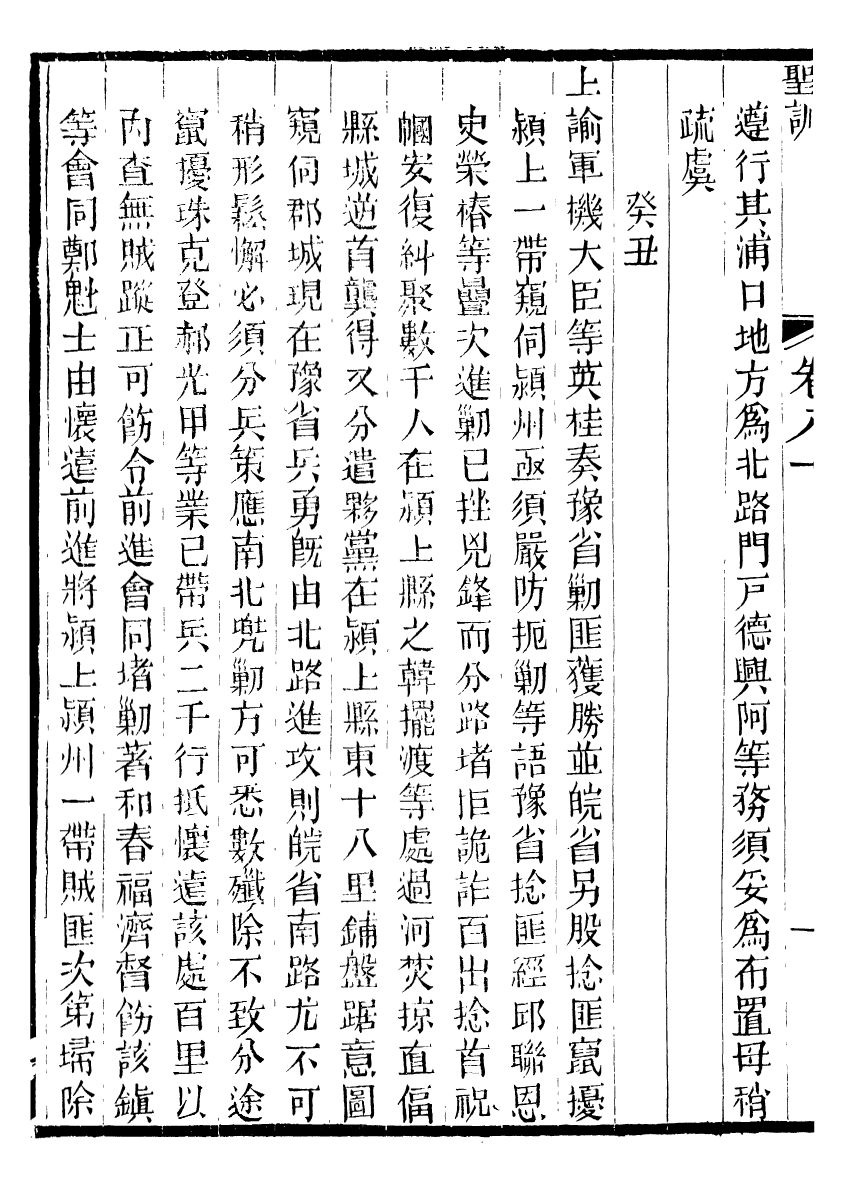 聖訓
卷八一
一
遵行其浦口地方為北路門戸德興阿等務須妥為布置毋稍
疏虞
癸丑
上諭軍機大臣等英桂奏豫省勦匪獲勝並皖省另股捻匪竄擾
潁上一帶窺伺潁州亟須嚴防扼勦等語豫省捻匪經邱聯恩
史榮椿等疊次進勦已挫兇鋒而分路堵拒詭詐百出捻首祝
幗安復糾聚數千人在潁上縣之韓擺渡等處過河焚掠直偪
縣城逆首龔得又分遣夥黨在潁上縣東十八里鋪盤踞意圖
窺伺郡城現在豫省兵勇旣由北路進攻則皖省南路尤不可
稍形鬆懈必須分兵策應南北兜勦方可悉數殲除不致分途
竄擾珠克登郝光甲等業已帶兵二千行抵懷遠該處百里以
內查無賊蹤正可飭令前進會同堵勦著和春福濟督飭該鎭
等會同鄭魁士由懷遠前進將潁上潁州一帶賊匪次第埽除